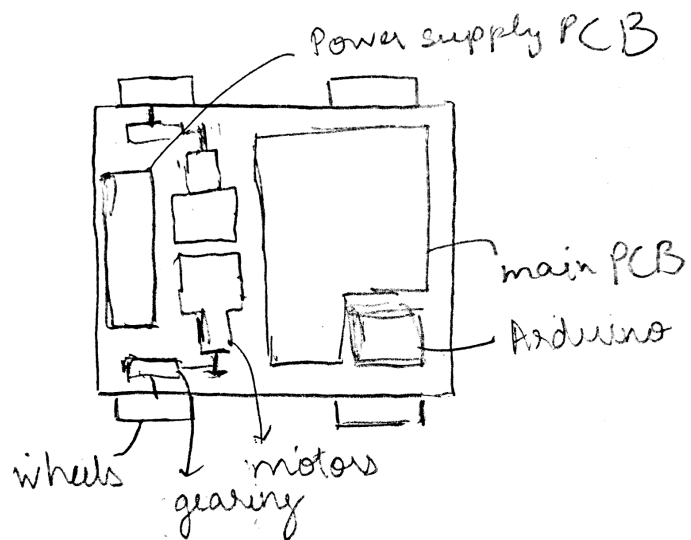 Power supply PCB
main PCB
Arduino
wheels
gearing
motors